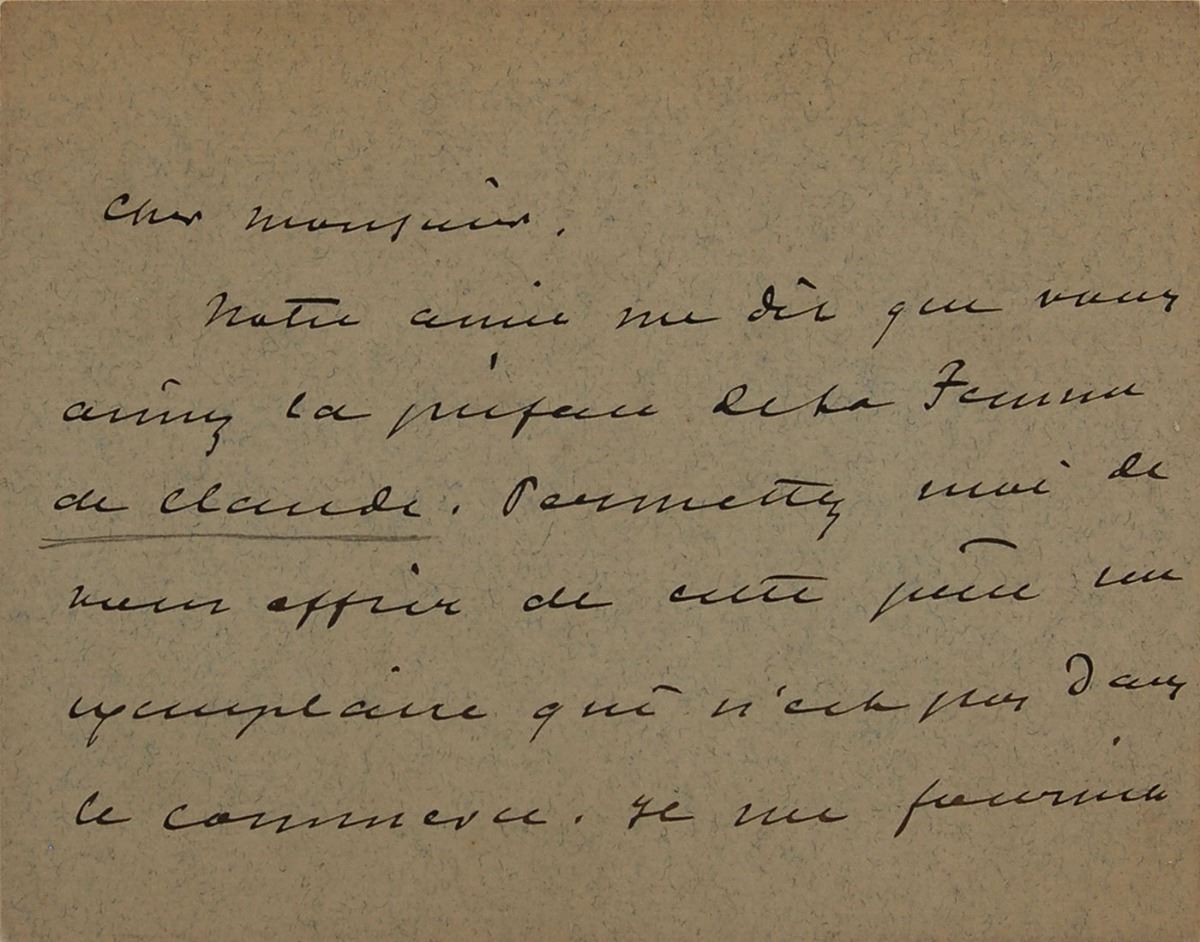 Cher Monsieur.
Notre amie me dit que vous
aimez la préface de la Femme
de Claude. Permettez moi de
vous offrir de cette pièce un
exemplaire qui n'est pas dans
le commerce. Il me fournit